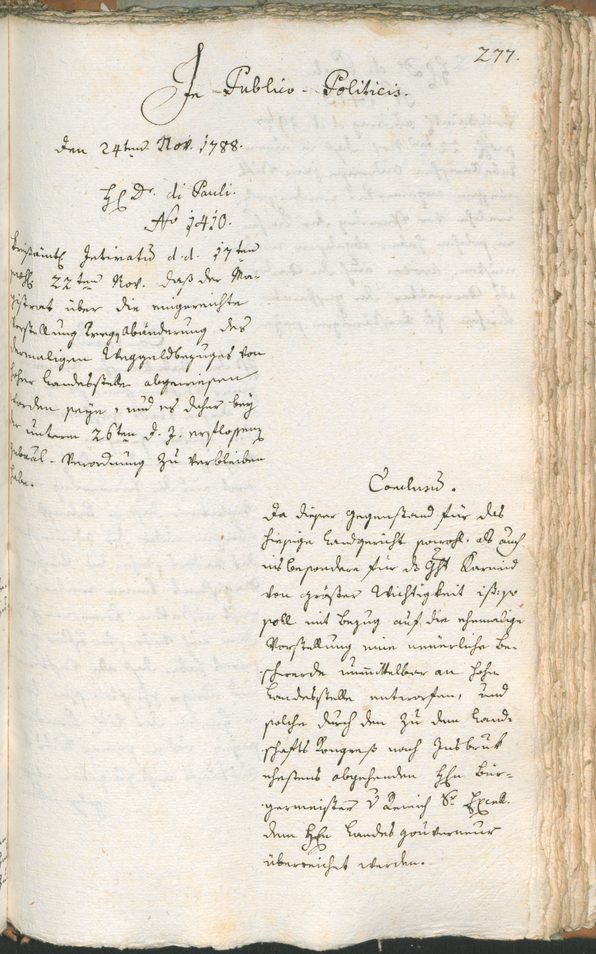 277.
In Publico-Politicis.
den 24ten Nov. 1788.
H. Dr. di Pauli.
No 1410.
Kreisämtl. Intimation d. d. 17ten
22ten Nov. daß der Ma-
gistrat über die eingereichte
Vorstellung wegen Abänderung des
dermaligen Weggeldbezuges von
hoher Landesstelle abgewiesen
worden seye, und es daher bey
der unterm 26ten d. J. erflossenen
Gubernial-Verordnung zu verbleiben
habe.
Conclusum.
Da dieser Gegenstand für das
hiesige Landgericht sowohl, als auch
insbesondere für die Karneid
von größter Wichtigkeit ist: so
soll mit Bezug auf die ehemalige
Vorstellung eine neuerliche Be-
schwerde unmittelbar an hohe
Landesstelle entworfen, und
solche durch den zu dem Land-
schafts Kongreß nach Insbruk
ehestens abgehenden Hrn. Bür-
germeister v Remich Sr. Excell.
dem Hrn Landesgouverneur
überreichet werden.